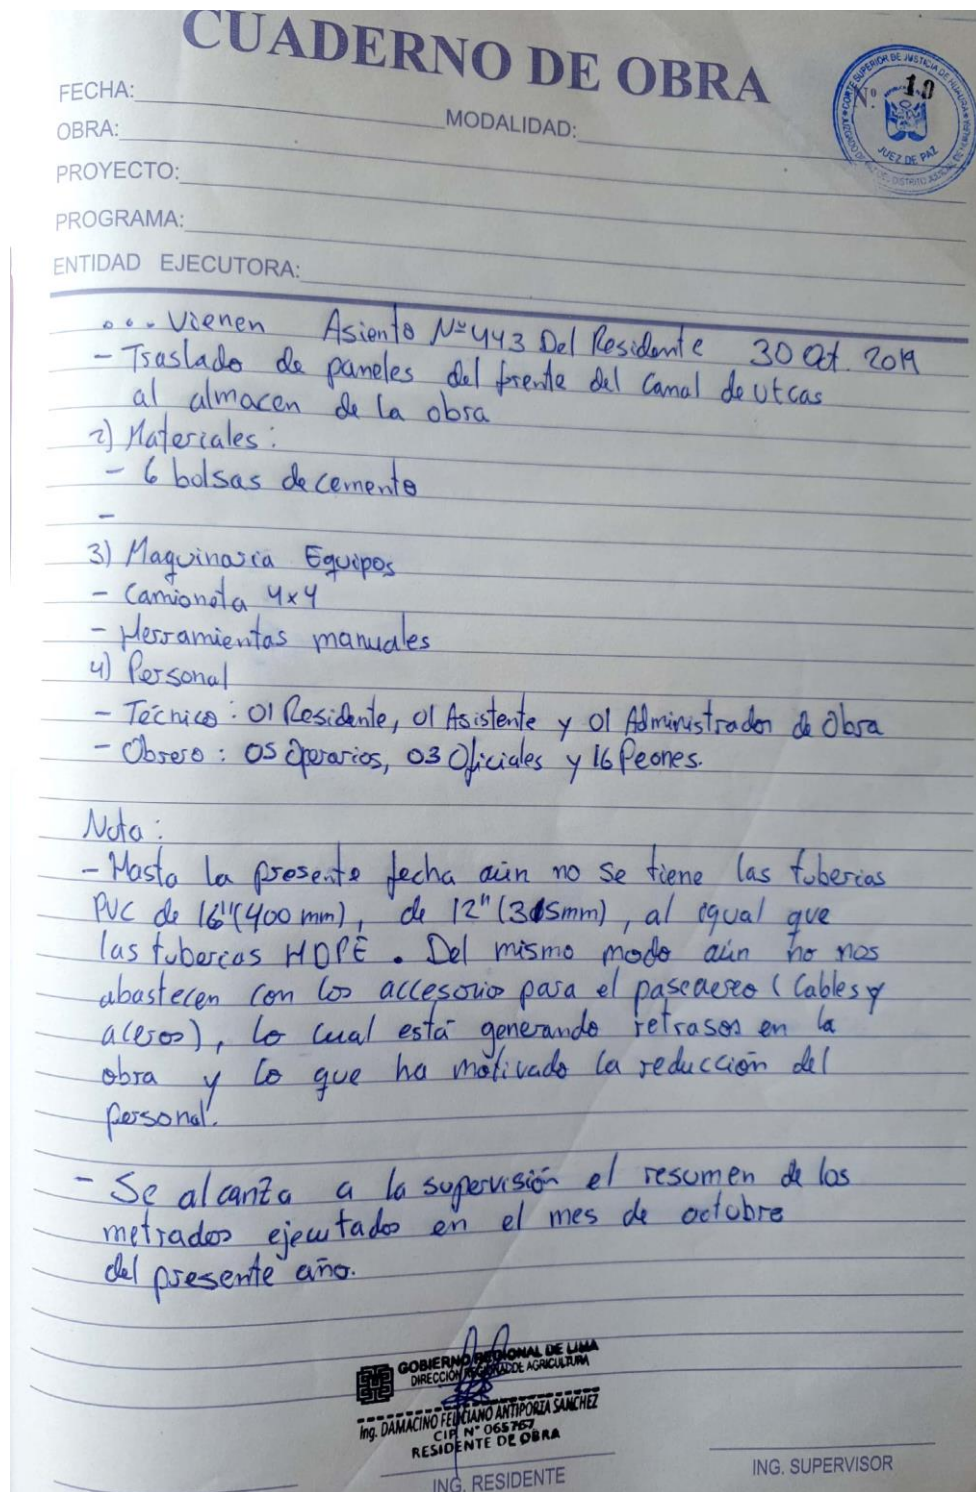 CUADERNO DE OBRA
Nº 10
CORTE SUPERIOR DE JUSTICIA DE HUAURA
JUEZ DE PAZ
FECHA:
OBRA:
MODALIDAD:
PROYECTO:
PROGRAMA:
ENTIDAD EJECUTORA:
... Vienen Asiento Nº 443 Del Residente 30 Oct. 2019
- Traslado de paneles del frente del Canal de utcas
al almacen de la obra
2) Materiales:
- 6 bolsas de cemento
-
3) Maquinaria Equipos
- Camioneta 4x4
- Herramientas manuales
4) Personal
- Técnico: 01 Residente, 01 Asistente y 01 Administrador de Obra
- Obrero: 05 Operarios, 03 Oficiales y 16 Peones.
Nota:
- Hasta la presente fecha aún no se tiene las tuberias
PVC de 16"(400 mm), de 12"(315mm), al igual que
las tuberias HDPE. Del mismo modo aún no nos
abastecen con los accesorio para el paseaereo (Cables y
aceros), lo cual está generando retrasos en la
obra y lo que ha motivado la reducción del
personal.
- Se alcanza a la supervisión el resumen de los
metrados ejecutados en el mes de octubre
del presente año.
GOBIERNO REGIONAL DE LIMA
DIRECCIÓN REGIONAL DE AGRICULTURA
Ing. DAMACINO FELICIANO ANTIPORTA SANCHEZ
CIP. N° 065767
RESIDENTE DE OBRA
ING. RESIDENTE
ING. SUPERVISOR